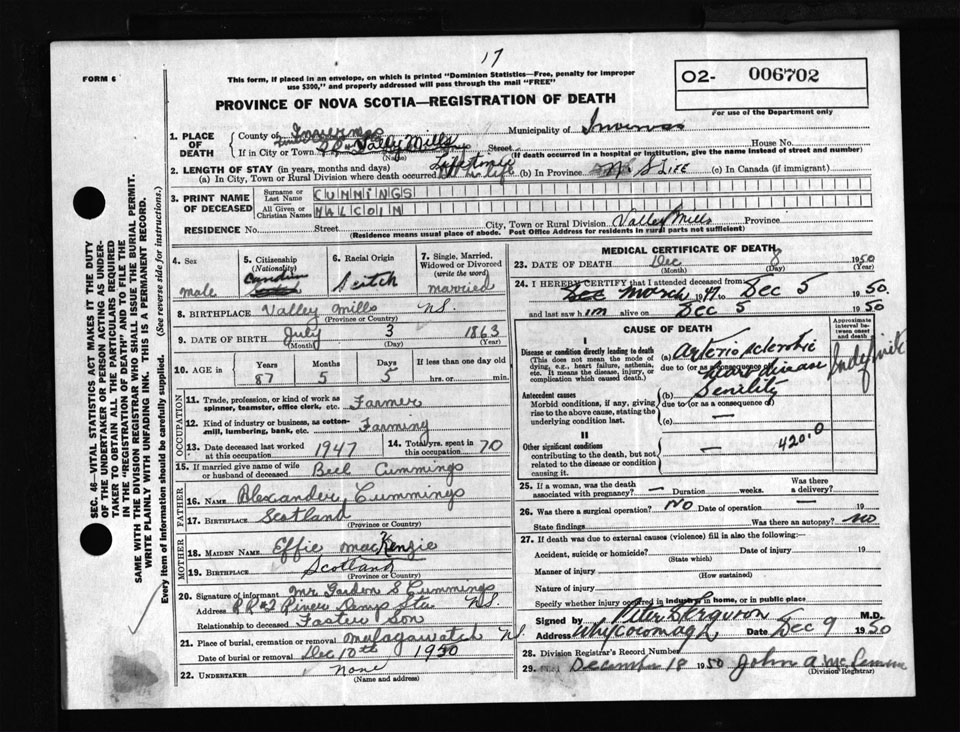 17
FORM 6
This form, if placed in an envelope, on which is printed "Dominion Statistics—Free, penalty for improper
use $300," and properly addressed will pass through the mail "FREE"
O2- 006702
For use of the Department only
PROVINCE OF NOVA SCOTIA—REGISTRATION OF DEATH
1. PLACE OF DEATH
County of Inverness Municipality of Inverness
If in City or Town Valley Mills (Name) Street House No.
(If death occurred in a hospital or institution, give the name instead of street and number)
2. LENGTH OF STAY (in years, months and days) Life time
(a) In City, Town or Rural Division where death occurred All his life (b) In Province N S LIFE (c) In Canada (if immigrant)
3. PRINT NAME OF DECEASED
Surname or Last Name CUMMINGS
All Given or Christian Names MALCOLM
RESIDENCE No. Street City, Town or Rural Division Valley Mills Province
(Residence means usual place of abode. Post Office Address for residents in rural parts not sufficient)
4. Sex male
5. Citizenship (Nationality) Canadian
6. Racial Origin Scotch
7. Single, Married, Widowed or Divorced (write the word) married
8. BIRTHPLACE Valley Mills N.S.
(Province or Country)
9. DATE OF BIRTH July 3 1863
(Month) (Day) (Year)
10. AGE in Years 87 Months 5 Days 5 If less than one day old hrs. or min.
OCCUPATION
11. Trade, profession, or kind of work as spinner, teamster, office clerk, etc. Farmer
12. Kind of industry or business, as cotton-mill, lumbering, bank, etc. Farming
13. Date deceased last worked at this occupation 1947
14. Total yrs. spent in this occupation 70
15. If married give name of wife or husband of deceased Bell Cummings
FATHER
16. NAME Alexander Cummings
17. BIRTHPLACE Scotland
(Province or Country)
MOTHER
18. MAIDEN NAME Effie MacKenzie
19. BIRTHPLACE Scotland
(Province or Country)
20. Signature of informant Mr. Gordon S Cummings
Address RR #2 River Denys Sta N.S.
Relationship to deceased Foster Son
21. Place of burial, cremation or removal Malagawatch N.S.
Date of burial or removal Dec 10th 1950
22. UNDERTAKER None
(Name and address)
MEDICAL CERTIFICATE OF DEATH
23. DATE OF DEATH Dec 8 1950
(Month) (Day) (Year)
24. I HEREBY CERTIFY that I attended deceased from
March 1947 to Dec 5 1950.
and last saw him alive on Dec 5 1950
CAUSE OF DEATH
Approximate interval between onset and death
I
Disease or condition directly leading to death
(This does not mean the mode of dying, e.g., heart failure, asthenia, etc. It means the disease, injury, or complication which caused death.)
(a) Arterio sclerotic Indefinite
due to (or as a consequence of)
Heart disease
Antecedent causes
Morbid conditions, if any, giving rise to the above cause, stating the underlying condition last.
(b) Senility
due to (or as a consequence of)
(c) —
II
Other significant conditions contributing to the death, but not related to the disease or condition causing it.
— 420.0
25. If a woman, was the death associated with pregnancy? — Duration weeks. Was there a delivery? —
26. Was there a surgical operation? No Date of operation — 19
State findings Was there an autopsy? no
27. If death was due to external causes (violence) fill in also the following:—
Accident, suicide or homicide? Date of injury 19
(State which)
Manner of injury
(How sustained)
Nature of injury
Specify whether injury occurred in industry, in home, or in public place
Signed by Peter Ferguson M.D.
Address Whycocomagh Date Dec 9 1950
28. Division Registrar's Record Number
29. Filed December 18 1950 John A. Mc
(Division Registrar)
SEC. 46—VITAL STATISTICS ACT MAKES IT THE DUTY
OF THE UNDERTAKER OR PERSON ACTING AS UNDER-
TAKER TO OBTAIN ALL THE PARTICULARS REQUIRED
IN THE "REGISTRATION OF DEATH" AND TO FILE THE
SAME WITH THE DIVISION REGISTRAR WHO SHALL ISSUE THE BURIAL PERMIT.
WRITE PLAINLY WITH UNFADING INK. THIS IS A PERMANENT RECORD.
Every item of information should be carefully supplied. (See reverse side for instructions.)